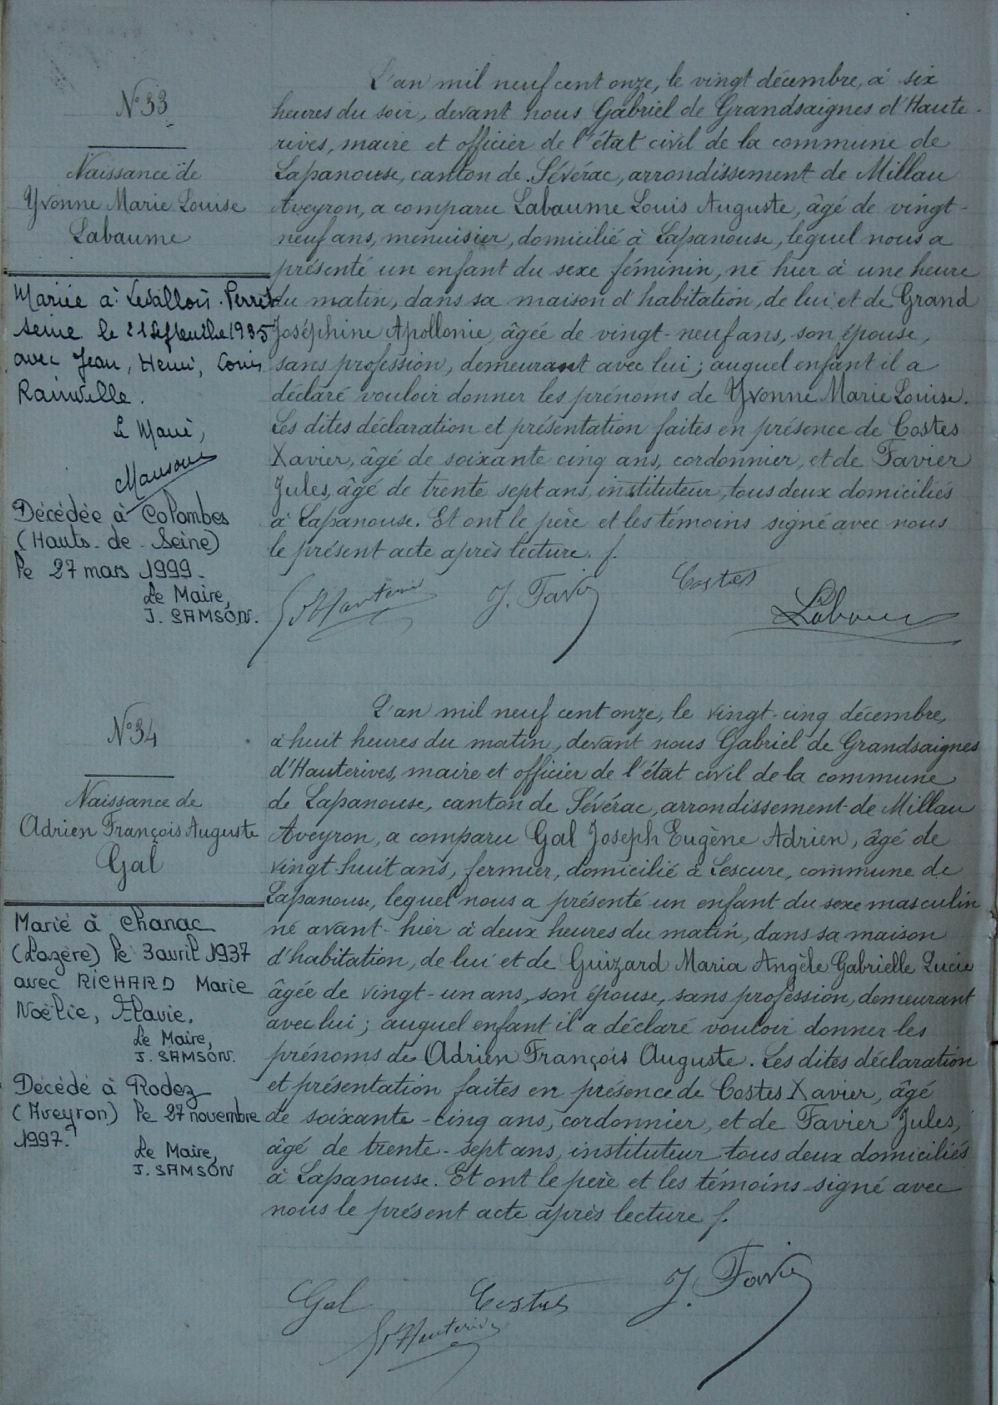 N° 33
Naissance de
Yvonne Marie Louise
Labaume
Mariée à Levallois-Perret
Seine le 21 Septembre 1935
avec Jean, Henri, Louis
Rainville.
Le Maire,
Décédée à Colombes
(Hauts-de-Seine)
le 27 mars 1999.
Le Maire,
J. SAMSON.
L'an mil neuf cent onze, le vingt décembre, à six
heures du soir, devant nous Gabriel de Grandsaignes d'Haute-
rives, maire et officier de l'état civil de la commune de
Lapanouse, canton de Sévérac, arrondissement de Millau
Aveyron, a comparu Labaume Louis Auguste, âgé de vingt-
neuf ans, menuisier, domicilié à Lapanouse, lequel nous a
présenté un enfant du sexe féminin, né hier à une heure
du matin, dans sa maison d'habitation, de lui et de Grand
Joséphine Apollonie, âgée de vingt-neuf ans, son épouse,
sans profession, demeurant avec lui ; auquel enfant il a
déclaré vouloir donner les prénoms de Yvonne Marie Louise.
Les dites déclaration et présentation faites en présence de Costes
Xavier, âgé de soixante cinq ans, cordonnier, et de Favier
Jules, âgé de trente sept ans, instituteur, tous deux domiciliés
à Lapanouse. Et ont le père et les témoins signé avec nous
le présent acte après lecture.
G d'Hauterives J. Favier Costes
Labaume
N° 34
Naissance de
Adrien François Auguste
Gal
Marié à Chanac
(Lozère) le 3 avril 1937
avec RICHARD Marie
Noëlie, Flavie.
Le Maire,
J. SAMSON.
Décédé à Rodez
(Aveyron) le 27 novembre
1997.
Le Maire,
J. SAMSON
L'an mil neuf cent onze, le vingt-cinq décembre,
à huit heures du matin, devant nous Gabriel de Grandsaignes
d'Hauterives, maire et officier de l'état civil de la commune
de Lapanouse, canton de Sévérac, arrondissement de Millau
Aveyron, a comparu Gal Joseph Eugène Adrien, âgé de
vingt-huit ans, fermier, domicilié à Lescure, commune de
Lapanouse, lequel nous a présenté un enfant du sexe masculin
né avant-hier à deux heures du matin, dans sa maison
d'habitation, de lui et de Guizard Maria Angèle Gabrielle Lucie
âgée de vingt-un ans, son épouse, sans profession, demeurant
avec lui ; auquel enfant il a déclaré vouloir donner les
prénoms de Adrien François Auguste. Les dites déclaration
et présentation faites en présence de Costes Xavier, âgé
de soixante-cinq ans, cordonnier, et de Favier Jules,
âgé de trente-sept ans, instituteur tous deux domiciliés
à Lapanouse. Et ont le père et les témoins signé avec
nous le présent acte après lecture
Gal Costes J. Favier
G d'Hauterives